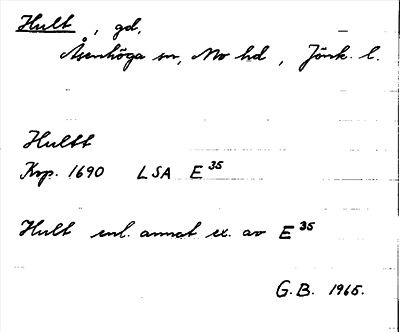 Hult, gd,
Åsenhöga sn, Mo hd, Jönk. l.
Hultt
Kop. 1690 LSA E 35
Hult enl. annat ex. av E 35
G.B. 1965.